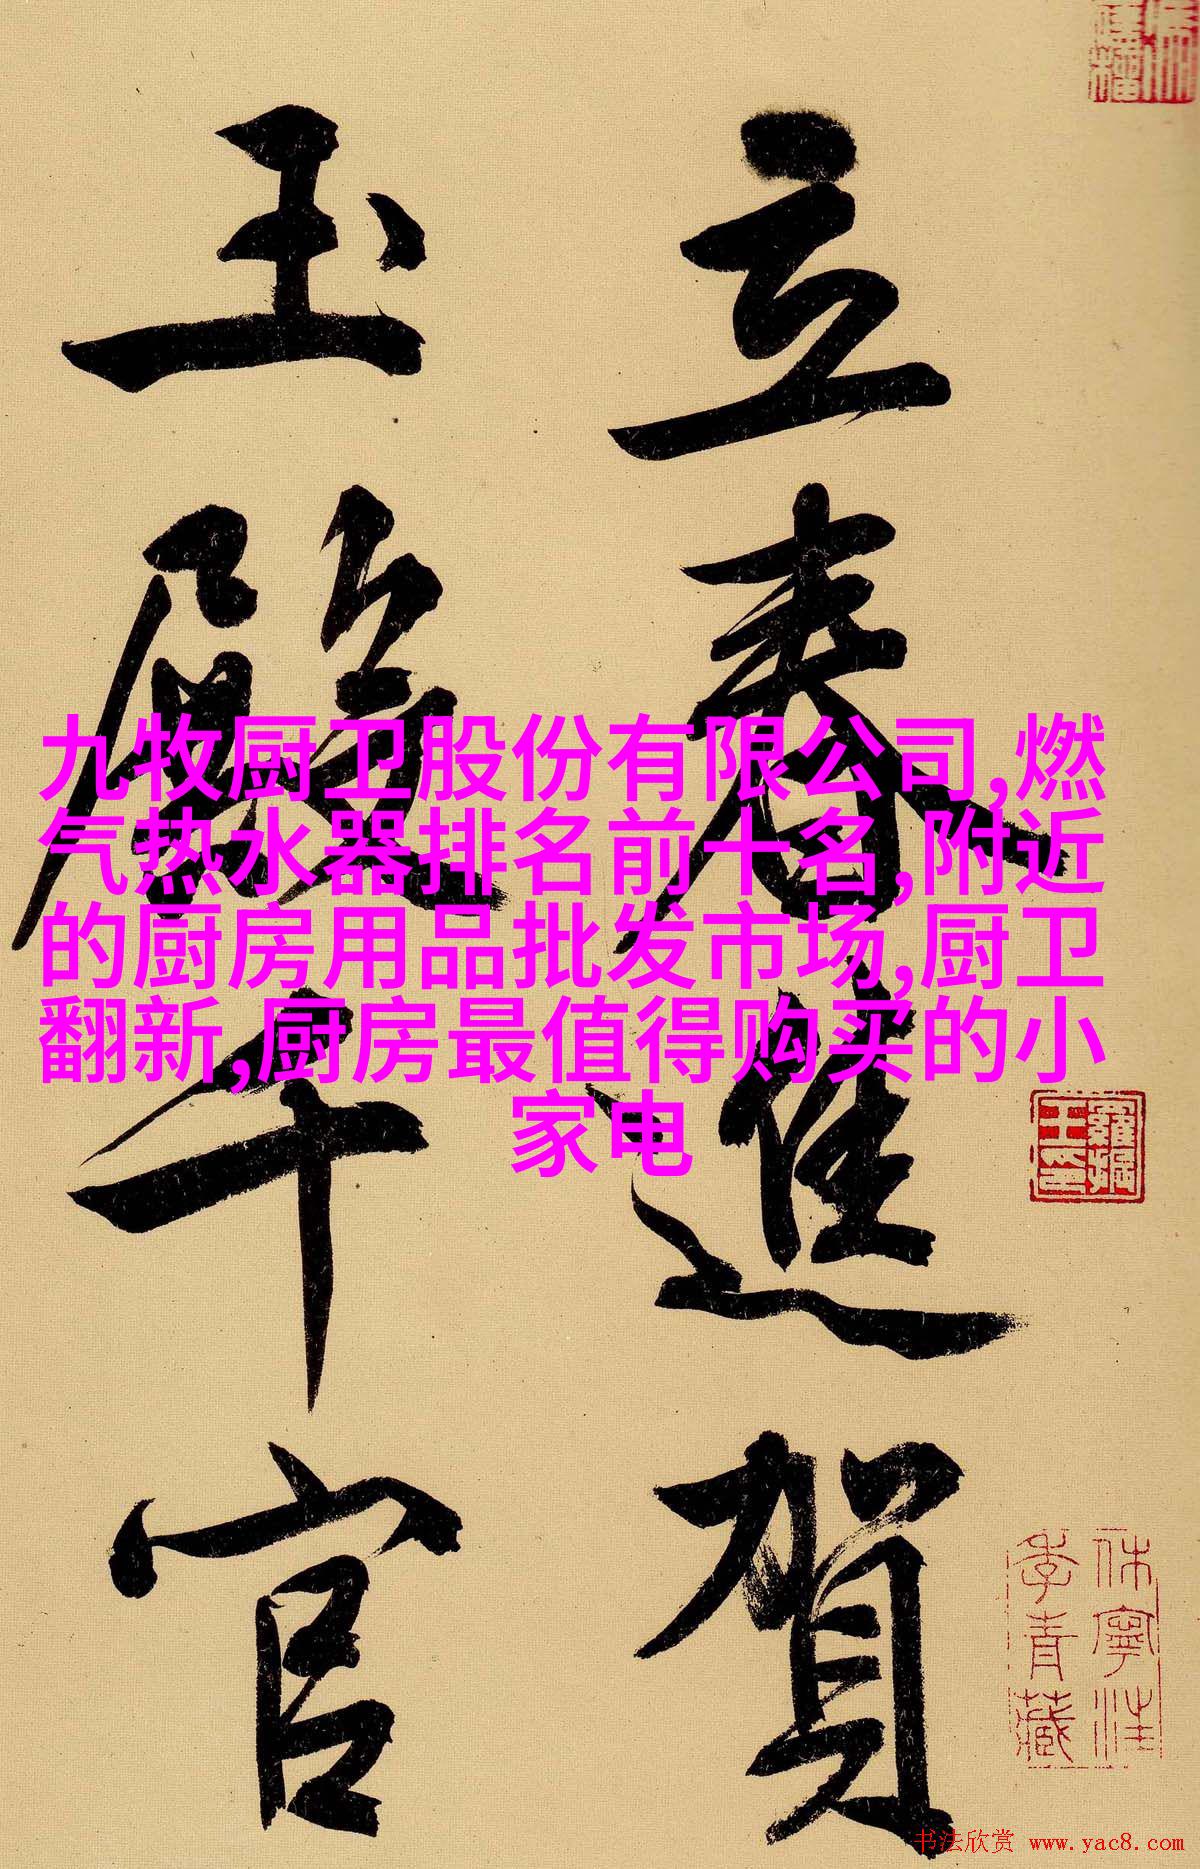 立春進賀
玉殿千官
九牧厨卫股份有限公司,燃
气热水器排名前十名,附近
的厨房用品批发市场,厨卫
翻新,厨房最值得购买的小
家电
休寧汪
季青藏
书法欣赏 www.yac8.com